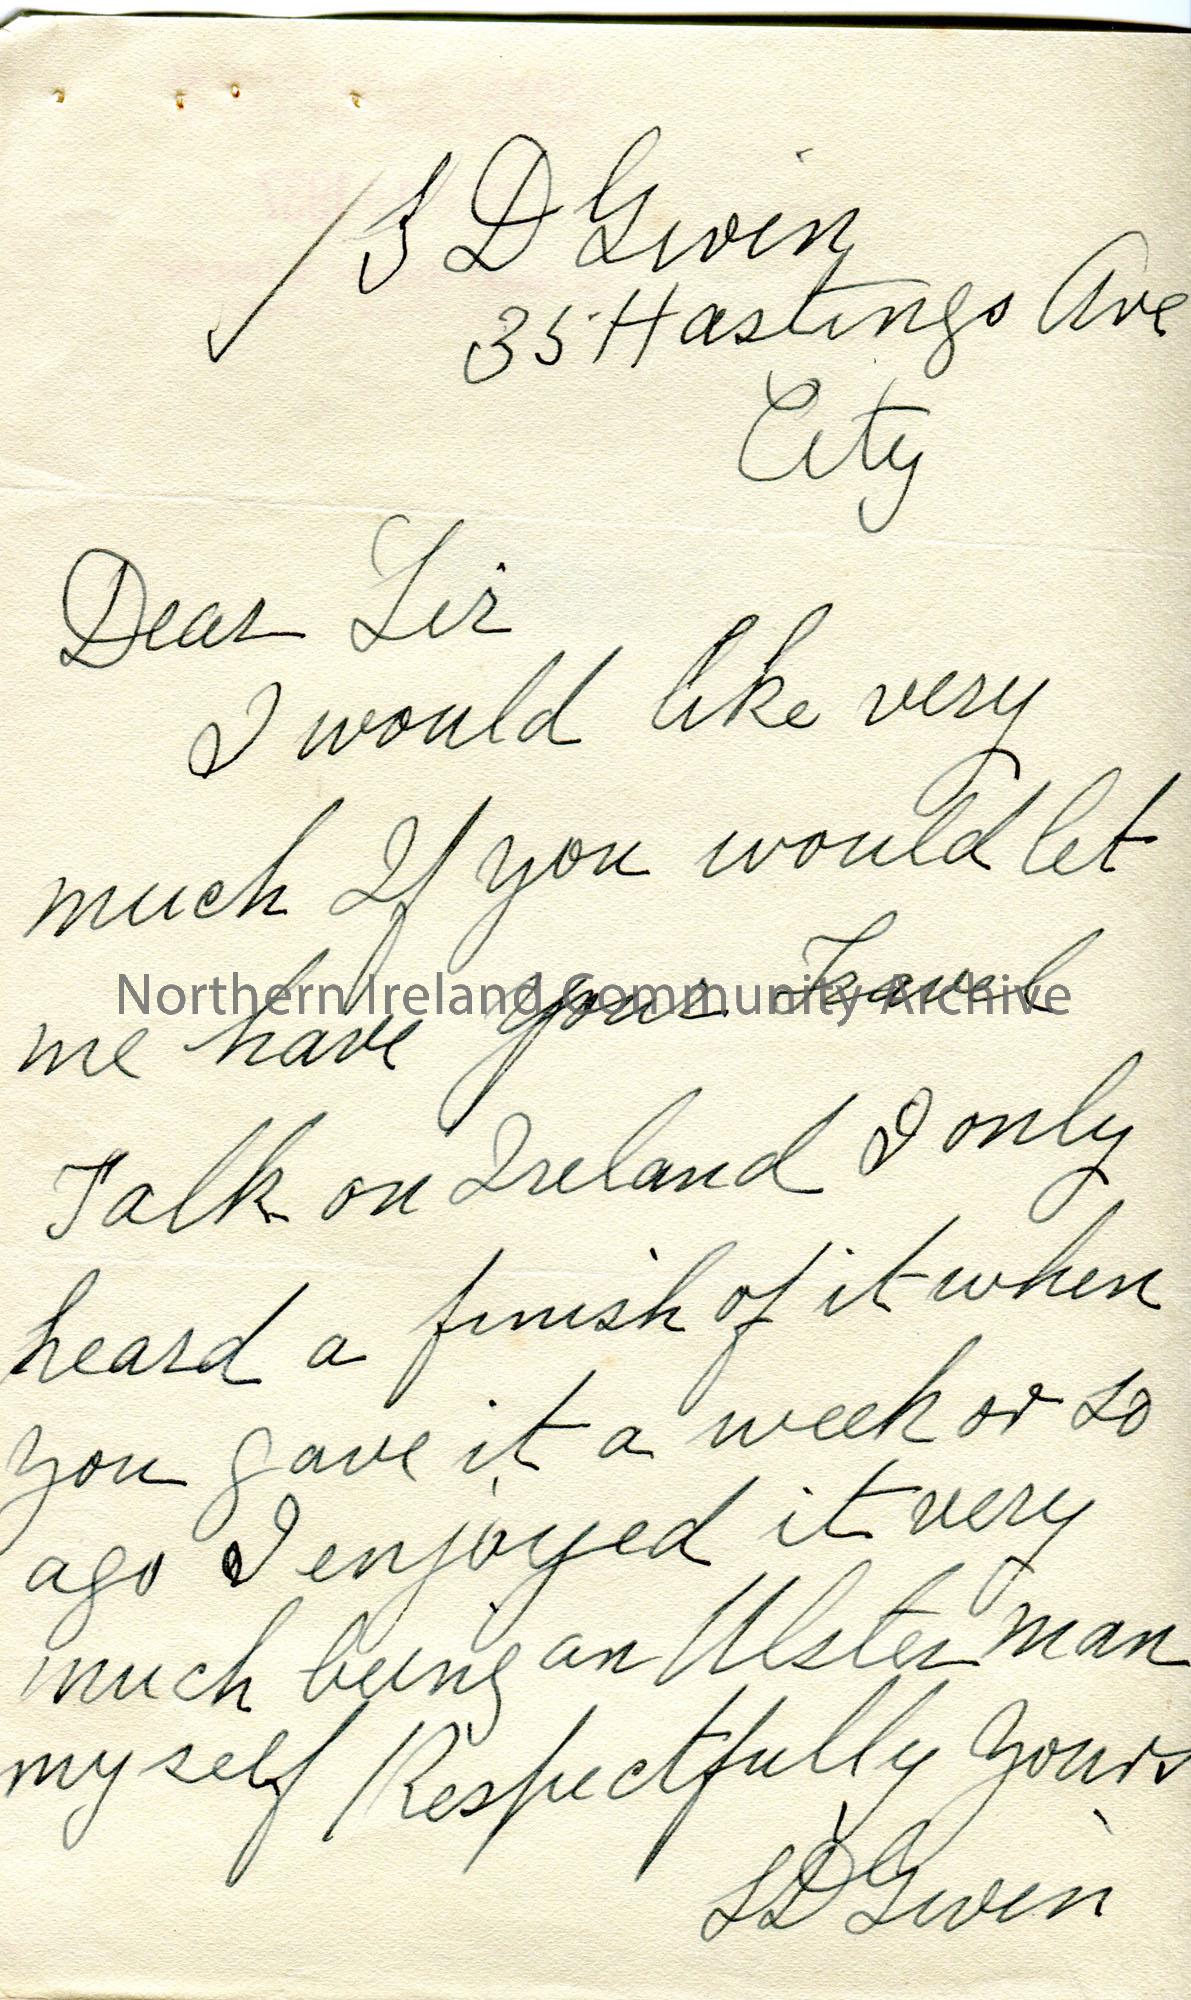 S D Givin
35 Hastings Ave
City
Dear Sir
I would like very
much If you would let
me have your Travel
Northern Ireland Community Archive
Talk on Ireland I only
heard a finish of it when
you gave it a week or so
ago I enjoyed it very
much being an Ulster man
myself Respectfully Yours
SD Givin